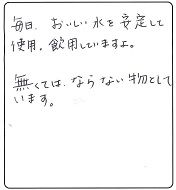 毎日、おいしい水を安定して
使用。飲用していますよ。
無くては、ならない物として
います。